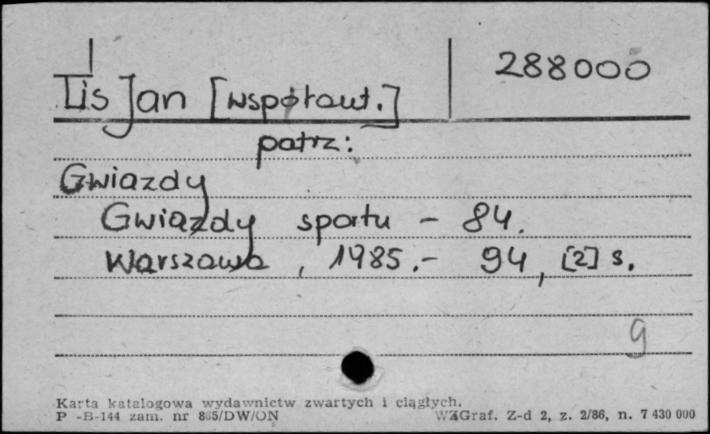 288000
Lis Jan [współaut.]
patrz:
Gwiazdy
Gwiazdy sportu - 84.
Warszawa, 1985.- 94, [2] s.
g
Karta katalogowa wydawnictw zwartych i ciągłych.
P -B-144 zam. nr 835/DW/ON WZGraf. Z-d 2, z. 2/86, n. 7 430 000